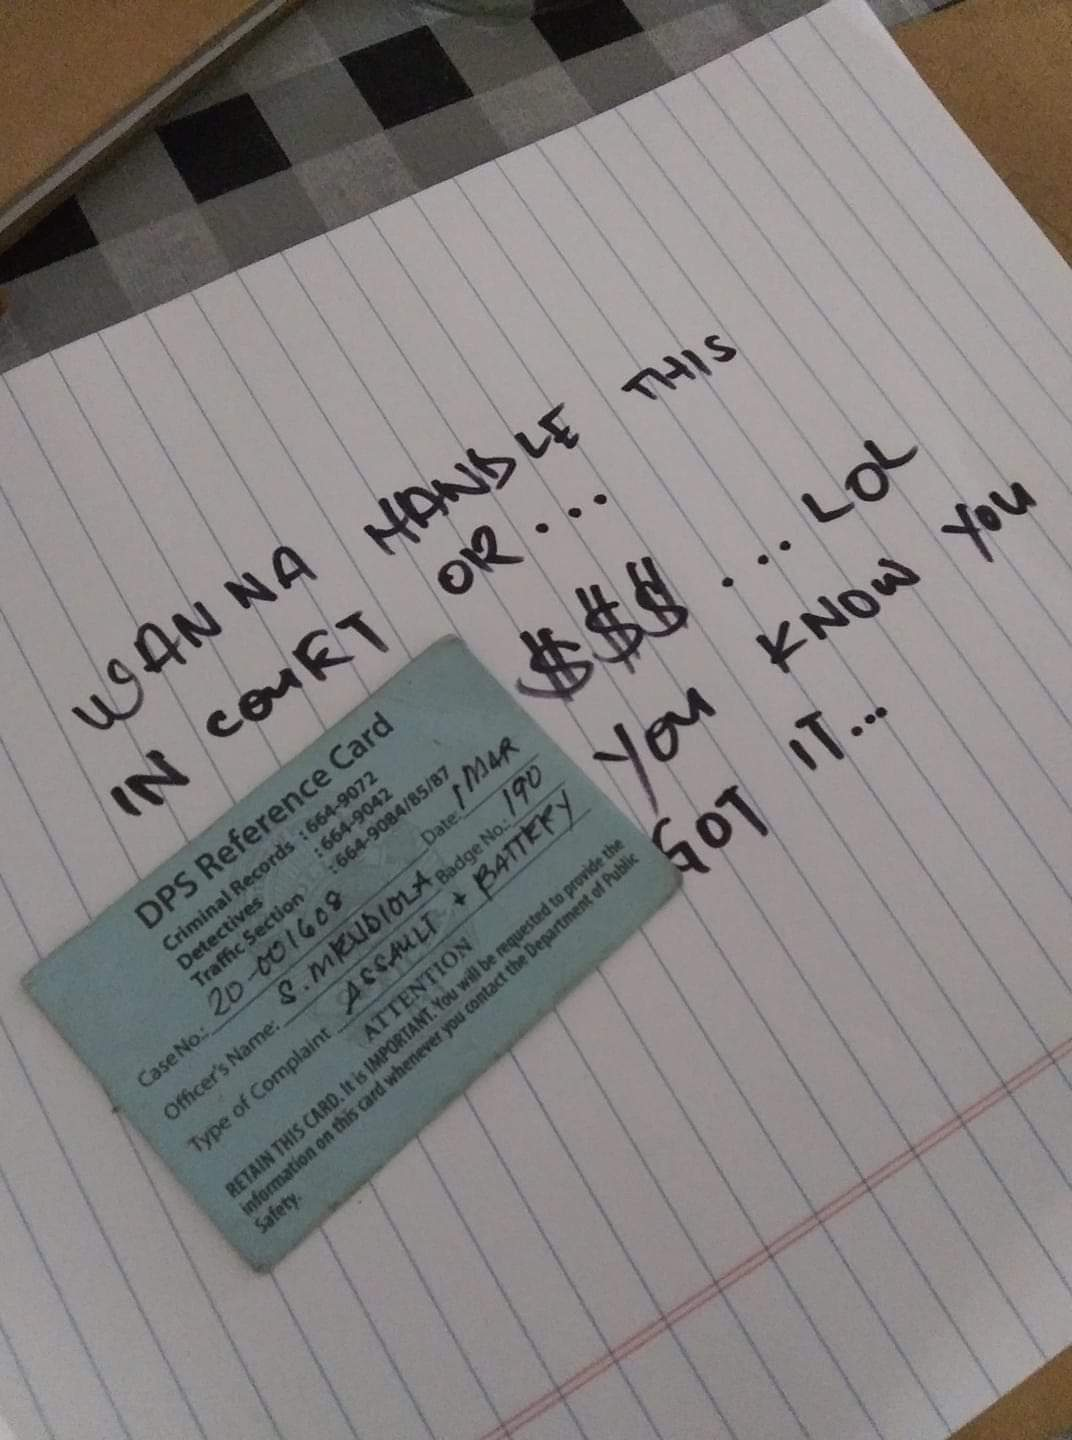 WANNA HANDLE THIS
IN COURT OR...
$$$ ... LOL
YOU KNOW YOU
GOT IT...
DPS Reference Card
Criminal Records : 664-9072
Detectives : 664-9042
Traffic Section : 664-9084/85/87
Case No.: 20-001608 Date: 1 MAR
Officer's Name: S. MENDIOLA Badge No.: 190
Type of Complaint ASSAULT + BATTERY
ATTENTION
RETAIN THIS CARD. It is IMPORTANT. You will be requested to provide the
information on this card whenever you contact the Department of Public
Safety.